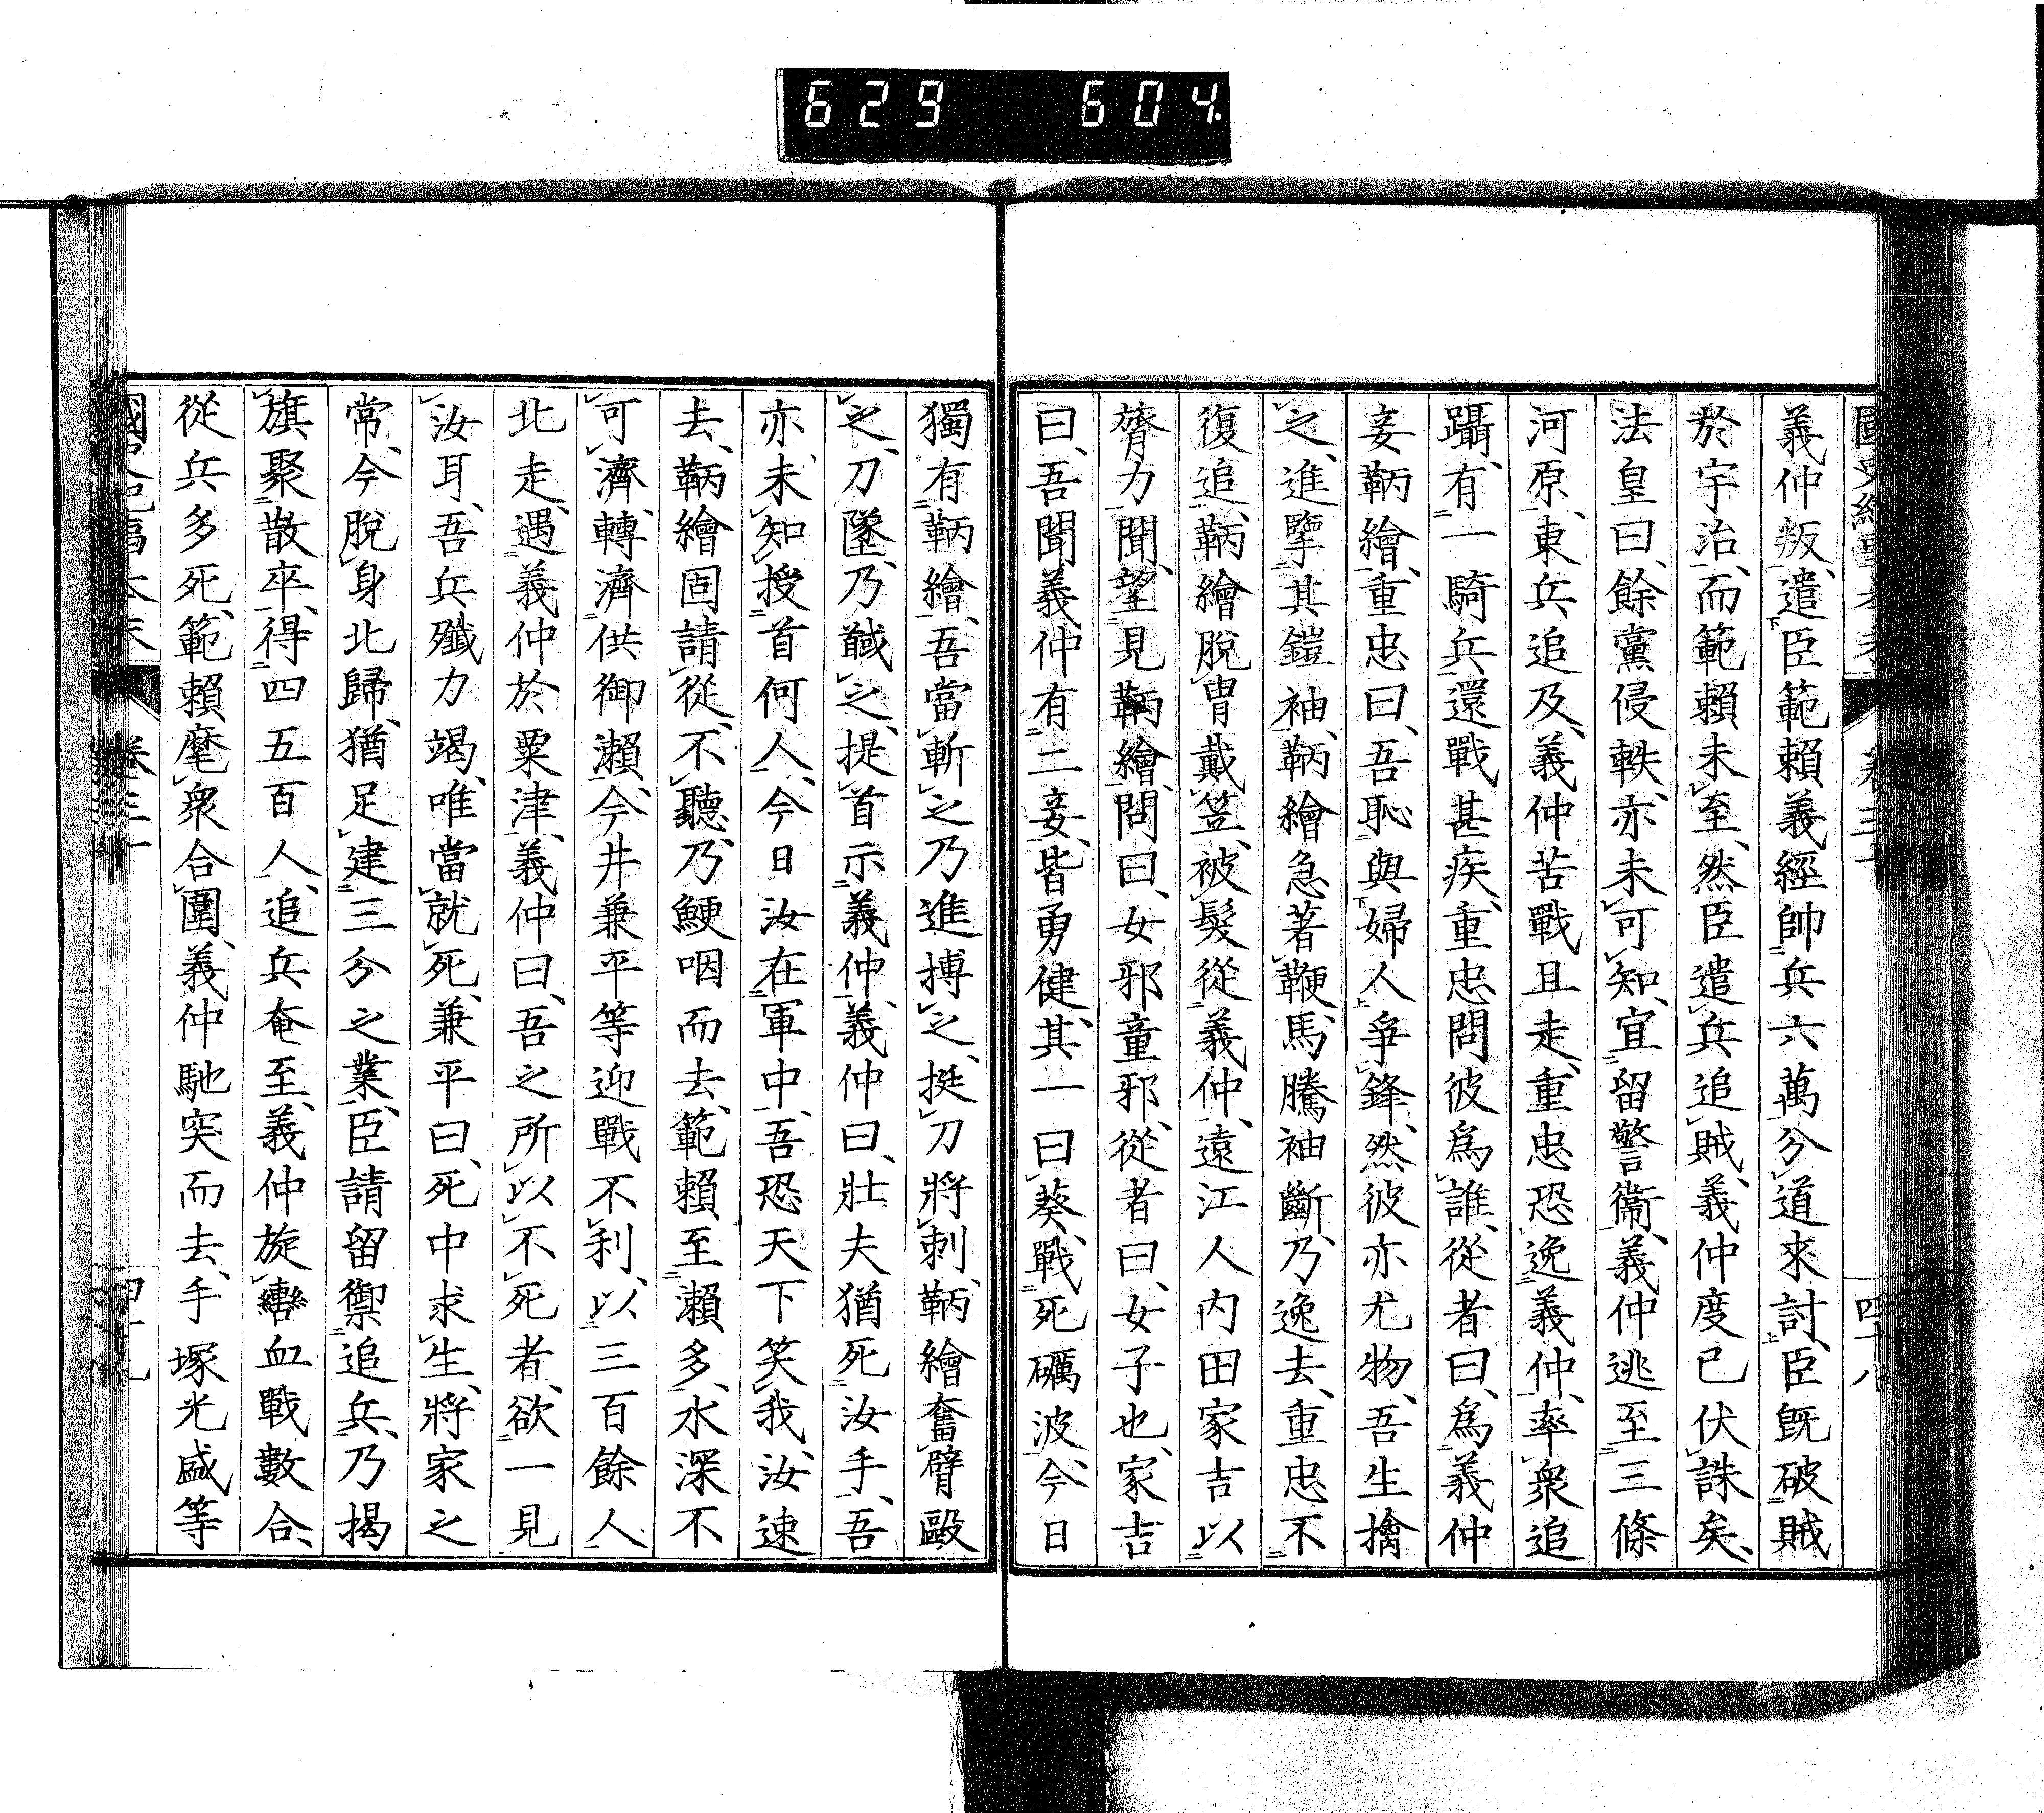 629 604
義仲叛、遣臣範賴義經帥兵六萬分道來討、臣既破賊
於宇治、而範賴未至、然臣遣兵追賊、義仲度已伏誅矣、
法皇曰、餘黨侵軼、亦未可知、宜留警衞、義仲逃至三條
河原、東兵追及、義仲苦戰且走、重忠恐逸義仲、率衆追
躡、有一騎兵、還戰甚疾、重忠問彼爲誰、從者曰、爲義仲
妾鞆繪、重忠曰、吾恥與婦人爭鋒、然彼亦尤物、吾生擒
之、進擥其鎧袖、鞆繪急著鞭、馬騰袖斷、乃逸去、重忠不
復追、鞆繪脫冑戴笠、被髮從義仲、遠江人内田家吉以
膂力聞、望見鞆繪、問曰、女邪童邪、從者曰、女子也、家吉
曰、吾聞義仲有二妾、皆勇健、其一曰葵、戰死礪波、今日
獨有鞆繪、吾當斬之乃進搏之、挺刀將刺、鞆繪奮臂毆
之、刀墜、乃馘之、提首示義仲、義仲曰、壯夫猶死汝手、吾
亦未知授首何人、今日汝在軍中、吾恐天下笑我、汝速
去、鞆繪固請從、不聽、乃鯁咽而去、範賴至瀨多、水深不
可濟、轉濟供御瀨、今井兼平等迎戰不利、以三百餘人
北走、遇義仲於粟津、義仲曰、吾之所以不死者、欲一見
汝耳、吾兵殲力竭、唯當就死、兼平曰、死中求生、將家之
常、今脫身北歸、猶足建三分之業、臣請留禦追兵、乃揭
旗、聚散卒、得四五百人、追兵奄至、義仲旋轡血戰數合、
從兵多死、範賴麾衆合圍、義仲馳突而去、手塚光盛等